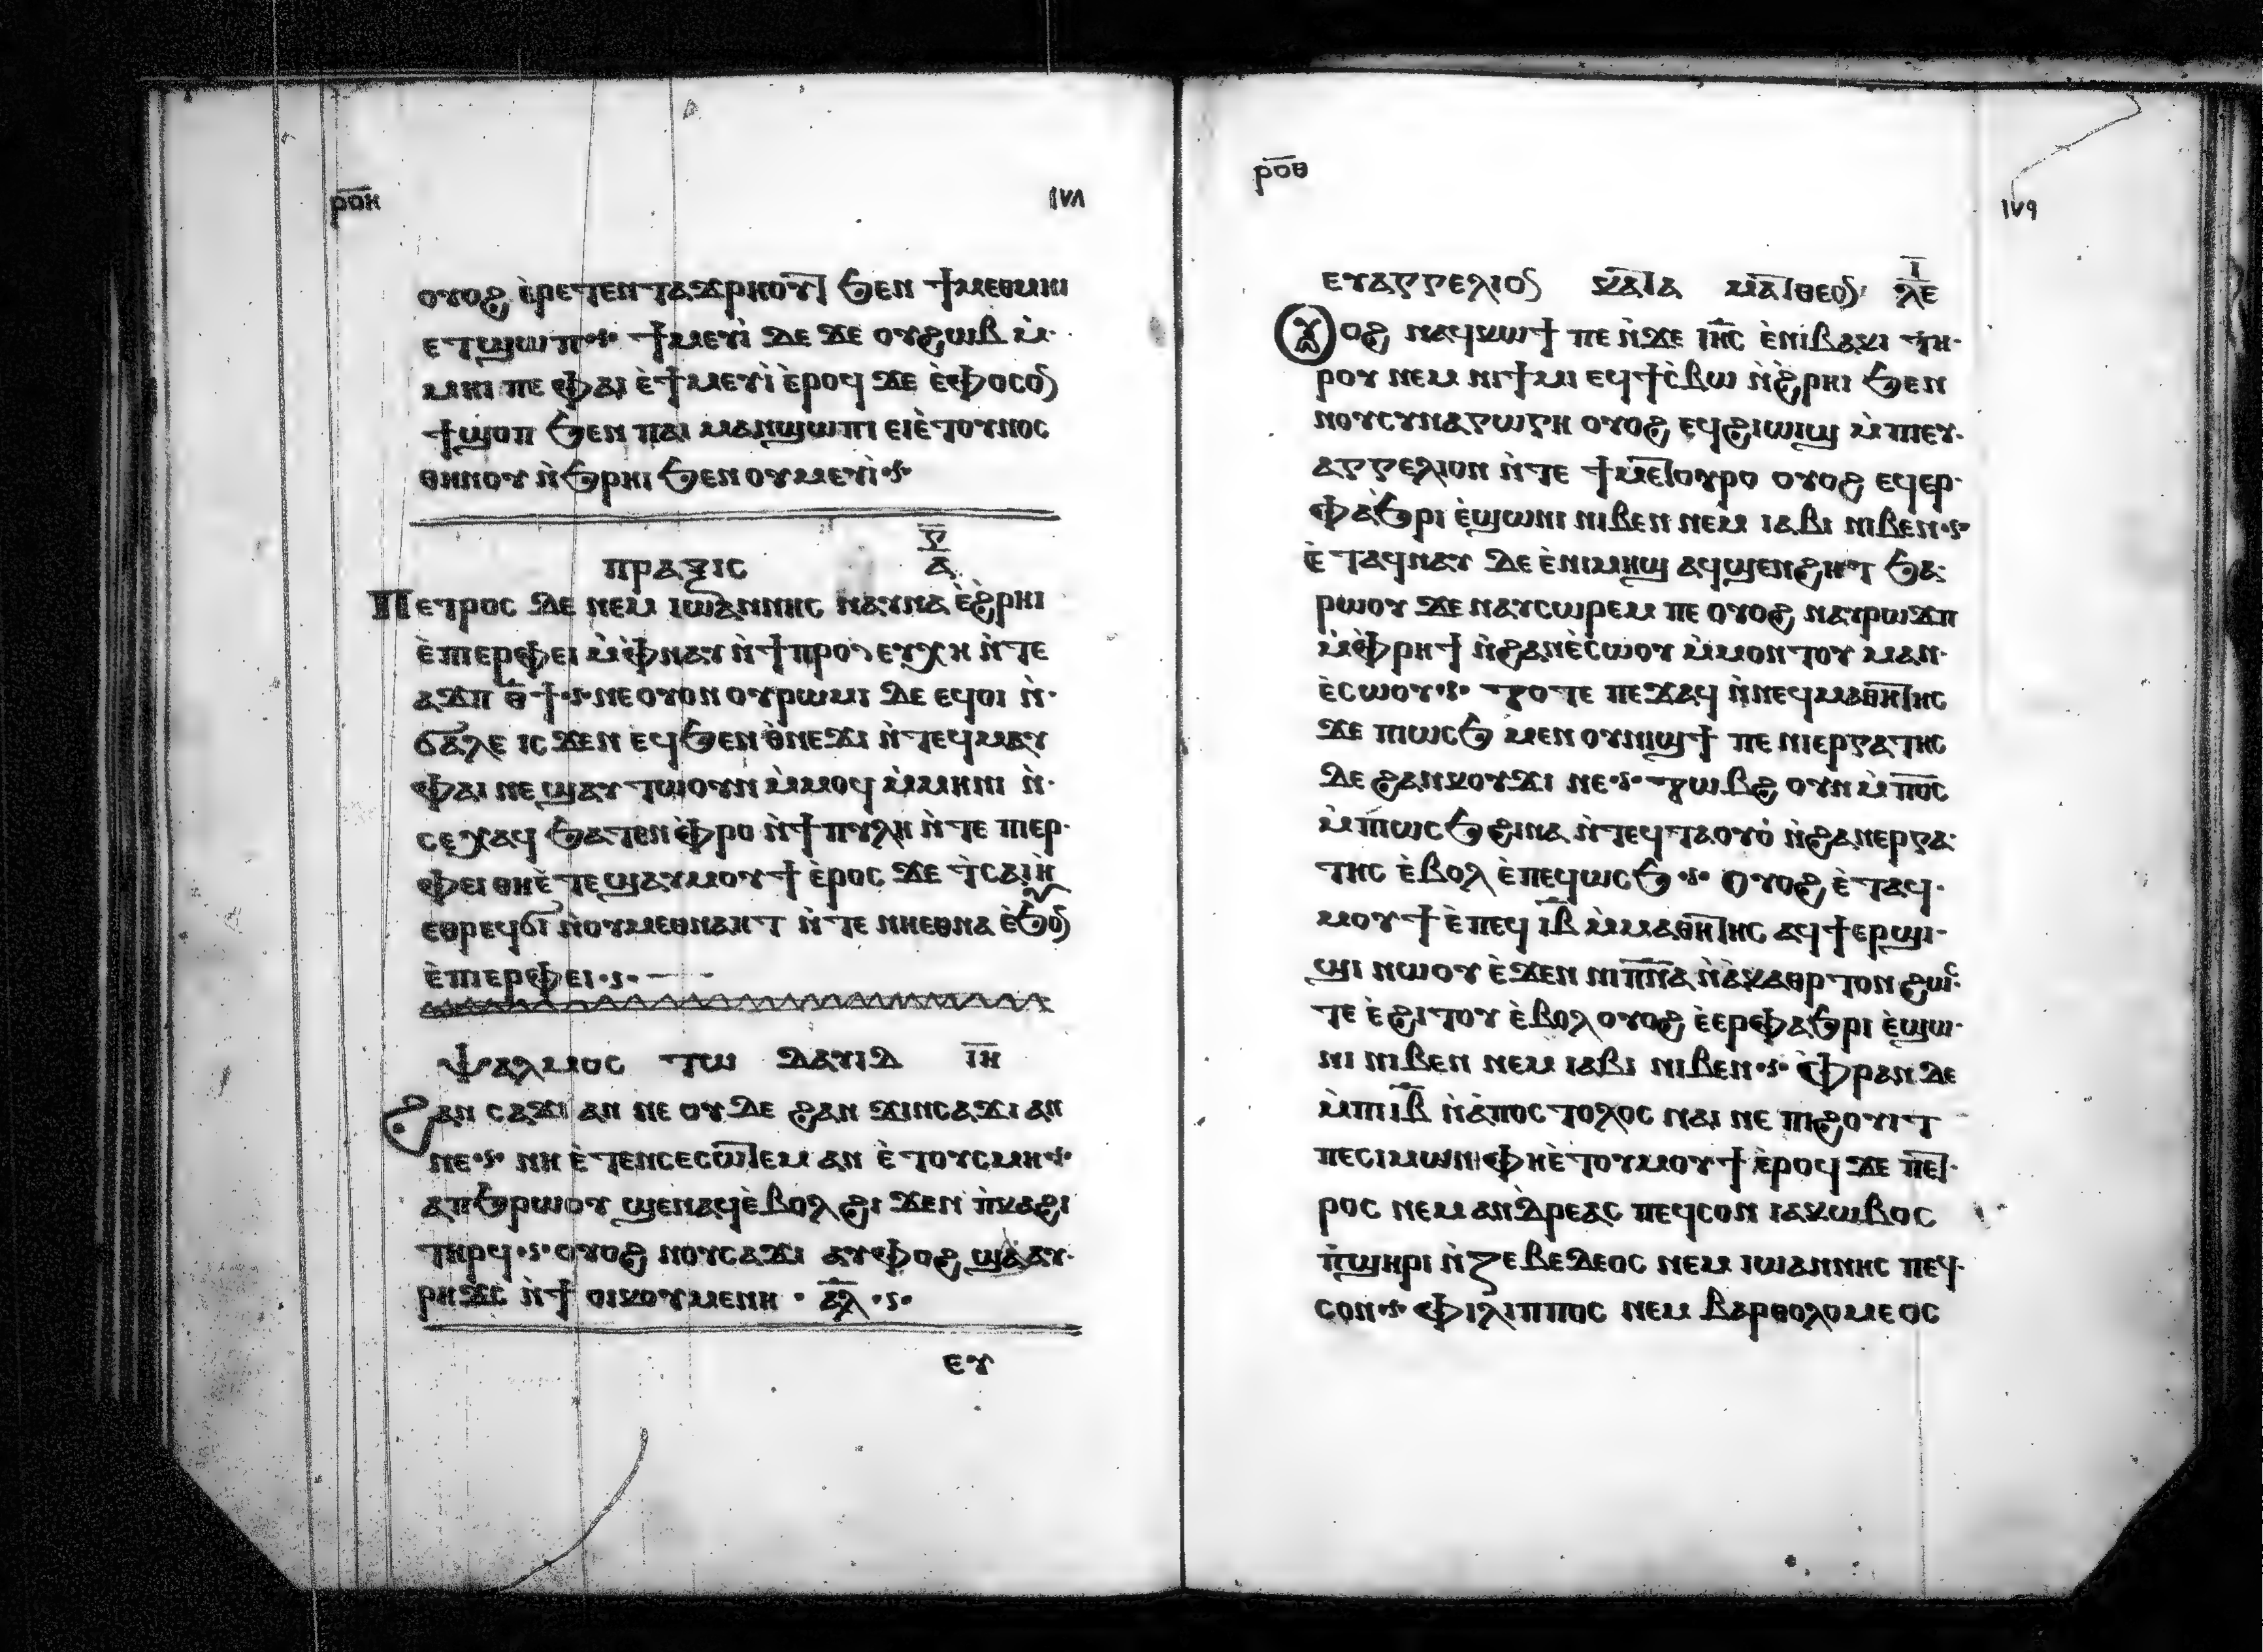 ⲣⲟⲏ ١٧٨
ⲟⲩⲟϩ ⲉ̀ⲣⲉⲧⲉⲛⲧⲁϫⲣⲏⲟⲩⲧ ϧⲉⲛ ϯⲙⲉⲑⲙⲏⲓ
ⲉⲧϣⲱⲡ ϯⲙⲉⲩⲓ̀ ⲇⲉ ϫⲉ ⲟⲩϩⲱⲃ ⲙ̀
ⲙⲏⲓ ⲡⲉ ⲫⲁⲓ ⲉ̀ϯⲙⲉⲩⲓ̀ ⲉ̀ⲣⲟϥ ϫⲉ ⲉ̀ⲫⲟⲥⲟⲛ
ϯϣⲟⲡ ϧⲉⲛ ⲡⲁⲓ ⲙⲁⲛϣⲱⲡⲓ ⲉⲓⲉ̀ⲧⲟⲩⲛⲟⲥ
ⲑⲏⲛⲟⲩ ⲛ̀ϧⲣⲏⲓ ϧⲉⲛ ⲟⲩⲙⲉⲩⲓ̀
ⲡⲣⲁⲝⲓⲥ ⲅ̅ ⲁ̅
Ⲡⲉⲧⲣⲟⲥ ⲇⲉ ⲛⲉⲙ ⲓⲱⲁⲛⲛⲏⲥ ⲛⲁⲩⲛⲁ ⲉ̀ϩ̀ⲣⲏⲓ
ⲉ̀ⲡⲓⲉⲣⲫⲉⲓ ⲙ̀ⲫ̀ⲛⲁⲩ ⲛ̀ϯⲡⲣⲟⲥⲉⲩⲭⲏ ⲛ̀ⲧⲉ
ⲁϫⲡ ⲑ̅ϯ ⲛⲉ ⲟⲩⲟⲛ ⲟⲩⲣⲱⲙⲓ ⲇⲉ ⲉϥⲟⲓ ⲛ̀
ϭⲁⲗⲉ ⲓⲥϫⲉⲛ ⲉϥϧⲉⲛ ⲑ̀ⲛⲉϫⲓ ⲛ̀ⲧⲉϥⲙⲁⲩ
ⲫⲁⲓ ⲛⲉ ϣⲁⲩⲧⲱⲟⲩⲛ ⲙ̀ⲙⲟϥ ⲙ̀ⲙⲏⲛⲓ ⲛ̀
ⲥⲉⲭⲁϥ ϧⲁⲧⲉⲛ ⲫ̀ⲣⲟ ⲛ̀ϯⲡⲩⲗⲏ ⲛ̀ⲧⲉ ⲡⲓⲉⲣ
ⲫⲉⲓ ⲑⲏⲉ̀ⲧⲉϣⲁⲩⲙⲟⲩϯ ⲉ̀ⲣⲟⲥ ϫⲉ ϯⲥⲁⲓⲏ̀
ⲉⲑⲣⲉϥϭⲓ ⲛ̀ⲟⲩⲙⲉⲑⲛⲁⲏⲧ ⲛ̀ⲧⲉ ⲛⲏⲉⲑⲛⲁ ⲉ̀ϧⲟⲩⲛ
ⲉ̀ⲡⲓⲉⲣⲫⲉⲓ
Ⲯⲁⲗⲙⲟⲥ ⲧⲱ ⲇⲁⲩⲓⲇ ⲓ̅ⲏ̅
Ϩⲁⲛ ⲥⲁϫⲓ ⲁⲛ ⲛⲉ ⲟⲩⲇⲉ ϩⲁⲛ ϫⲓⲛⲥⲁϫⲓ ⲁⲛ
ⲛⲉ ⲛⲏ ⲉ̀ⲧⲉⲛⲥⲉⲥⲱⲧⲉⲙ ⲁⲛ ⲉ̀ⲧⲟⲩⲥⲙⲏ
ⲁⲡϧⲣⲱⲟⲩ ϣⲉⲛⲁϥ ⲉ̀ⲃⲟⲗ ϩⲓϫⲉⲛ ⲡ̀ⲕⲁϩⲓ
ⲧⲏⲣϥ ⲟⲩⲟϩ ⲛⲟⲩⲥⲁϫⲓ ⲁⲩⲫⲟϩ ϣⲁ ⲁⲩ
ⲣⲏϫⲥ ⲛ̀ϯ ⲟⲓⲕⲟⲩⲙⲉⲛⲏ ⲁ̅ⲗ̅
ⲉⲩ
ⲣⲟⲑ ١٧٩
ⲉⲩⲁⲅⲅⲉⲗⲓⲟⲛ ⲕⲁⲧⲁ ⲙⲁⲧⲑⲉⲟⲛ ⲓ̅ ⲗⲉ
Ⲟⲩⲟϩ ⲛⲁϥⲕⲱϯ ⲡⲉ ⲛ̀ϫⲉ ⲓⲏ̅ⲥ ⲉ̀ⲛⲓⲃⲁⲕⲓ ⲧⲏ
ⲣⲟⲩ ⲛⲉⲙ ⲛⲓϯⲙⲓ ⲉϥϯⲥ̀ⲃⲱ ⲛ̀ϩ̀ⲣⲏⲓ ϧⲉⲛ
ⲛⲟⲩⲥⲩⲛⲁⲅⲱⲅⲏ ⲟⲩⲟϩ ⲉϥϩⲓⲱⲓϣ ⲙ̀ⲡⲓⲉⲩ
ⲁⲅⲅⲉⲗⲓⲟⲛ ⲛ̀ⲧⲉ ϯⲙⲉⲧⲟⲩⲣⲟ ⲟⲩⲟϩ ⲉϥⲉⲣ
ⲫⲁϧⲣⲓ ⲉ̀ϣⲱⲛⲓ ⲛⲓⲃⲉⲛ ⲛⲉⲙ ⲓⲁⲃⲓ ⲛⲓⲃⲉⲛ
ⲉ̀ⲧⲁϥⲛⲁⲩ ⲇⲉ ⲉ̀ⲛⲓⲙⲏϣ ⲁϥϣⲉⲛϩⲏⲧ ϧⲁ
ⲣⲱⲟⲩ ϫⲉ ⲛⲁⲩⲥⲱⲣⲉⲙ ⲡⲉ ⲟⲩⲟϩ ⲛⲁⲩⲣⲱϫⲡ
ⲙ̀ⲫ̀ⲣⲏϯ ⲛ̀ϩⲁⲛⲉ̀ⲥⲱⲟⲩ ⲙ̀ⲙⲟⲛⲧⲟⲩ ⲙⲁⲛ
ⲉ̀ⲥⲱⲟⲩ ⲧⲟⲧⲉ ⲡⲉϫⲁϥ ⲛ̀ⲛⲉϥⲙⲁⲑⲏⲧⲏⲥ
ϫⲉ ⲡⲓⲱⲥϧ ⲙⲉⲛ ⲟⲩⲛⲓϣϯ ⲡⲉ ⲛⲓⲉⲣⲅⲁⲧⲏⲥ
ⲇⲉ ϩⲁⲛⲕⲟⲩϫⲓ ⲛⲉ ⲧⲱⲃϩ ⲟⲩⲛ ⲙ̀ⲡⲟ̅ⲥ̅
ⲙ̀ⲡⲓⲱⲥϧ ϩⲓⲛⲁ ⲛ̀ⲧⲉϥⲧⲁⲟⲩⲟ̀ ⲛ̀ϩⲁⲛⲉⲣⲅⲁ
ⲧⲏⲥ ⲉ̀ⲃⲟⲗ ⲉ̀ⲡⲉϥⲱⲥϧ ⲟⲩⲟϩ ⲉ̀ⲧⲁϥ
ⲙⲟⲩϯ ⲉ̀ⲡⲉϥ ⲓ̅ⲃ̅ ⲙ̀ⲙⲁⲑⲏⲧⲏⲥ ⲁϥϯⲉⲣϣⲓ
ϣⲓ ⲛⲱⲟⲩ ⲉ̀ϫⲉⲛ ⲛⲓⲡ̅ⲛ̅ⲁ ⲛ̀ⲁ̀ⲕⲁⲑⲣⲧⲟⲛ ϩⲱⲥ
ⲧⲉ ⲉ̀ϩⲓⲧⲟⲩ ⲉ̀ⲃⲟⲗ ⲟⲩⲟϩ ⲉ̀ⲉⲣⲫⲁϧⲣⲓ ⲉ̀ϣⲱ
ⲛⲓ ⲛⲓⲃⲉⲛ ⲛⲉⲙ ⲓⲁⲃⲓ ⲛⲓⲃⲉⲛ ⲫ̀ⲣⲁⲛ ⲇⲉ
ⲙ̀ⲡⲓⲓ̅ⲃ̅ ⲛ̀ⲁ̀ⲡⲟⲥⲧⲟⲗⲟⲥ ⲛⲁⲓ ⲛⲉ ⲡⲓϩⲟⲩⲓⲧ
ⲡⲉ ⲥⲓⲙⲱⲛ ⲫⲏⲉ̀ⲧⲟⲩⲙⲟⲩϯ ⲉ̀ⲣⲟϥ ϫⲉ ⲡⲉⲧ
ⲣⲟⲥ ⲛⲉⲙ ⲁⲛⲇⲣⲉⲁⲥ ⲡⲉϥⲥⲟⲛ ⲓⲁⲕⲱⲃⲟⲥ
ⲡ̀ϣⲏⲣⲓ ⲛ̀ⲍⲉⲃⲉⲇⲉⲟⲥ ⲛⲉⲙ ⲓⲱⲁⲛⲛⲏⲥ ⲡⲉϥ
ⲥⲟⲛ ⲫⲓⲗⲓⲡⲡⲟⲥ ⲛⲉⲙ ⲃⲁⲣⲑⲟⲗⲟⲙⲉⲟⲥ